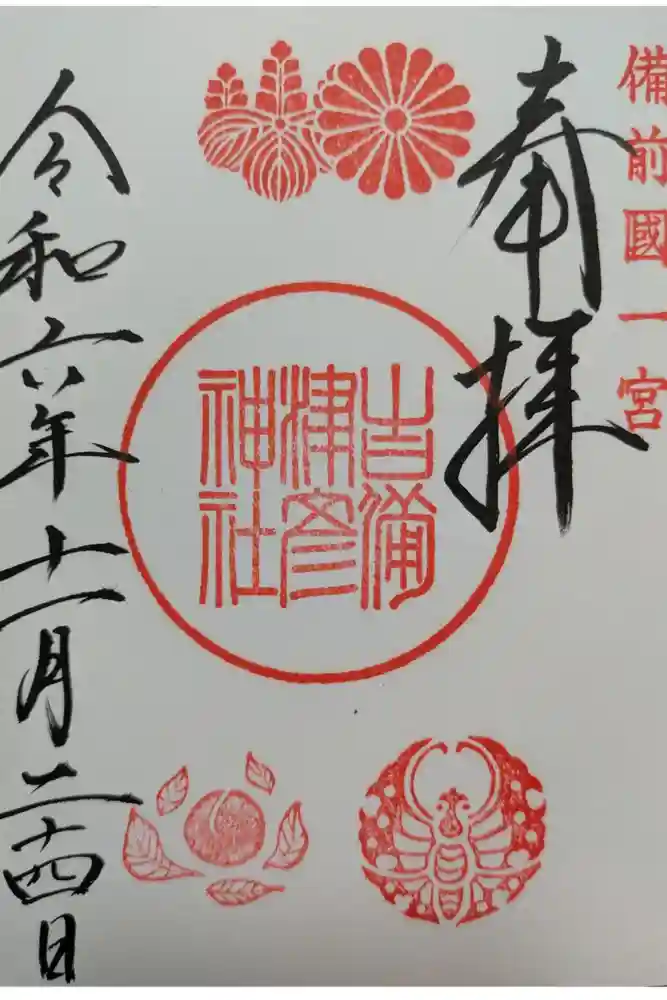 備前國一宮
奉拝
吉備
津彦
神社
令和六年十一月二十四日